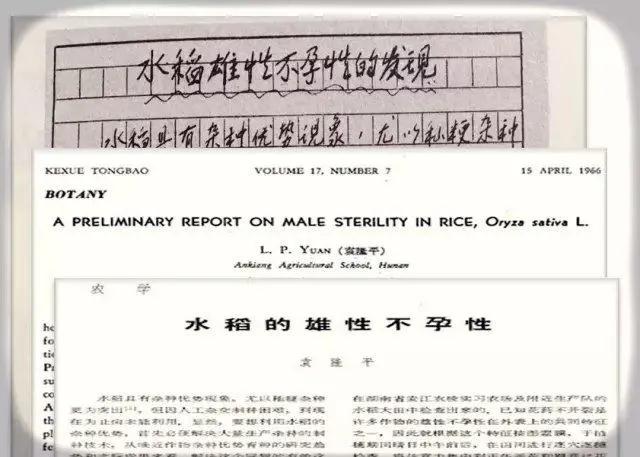 水稻雄性不孕性的发现
水稻具有杂种优势现象,尤以籼粳杂种
KEXUE TONGBAO VOLUME 17, NUMBER 7 15 APRIL 1966
BOTANY
A PRELIMINARY REPORT ON MALE STERILITY IN RICE, Oryza sativa L.
L. P. YUAN (袁隆平)
Ankiang Agricultural School, Hunan
农 学
水稻的雄性不孕性
袁 隆 平
水稻具有杂种优势现象,尤以籼粳杂种
更为突出[1],但因人工杂交制种困难,到现
在为止尚未能利用。显然,要想利用水稻的
杂种优势,首先必须解决大量生产杂种的制
种技术,从
在湖南省安江农校实习农场及附近生产队的
水稻大田中检查出来的,已知花药不开裂是
许多作物的雄性不孕性在外表上的共同特征
之一,因此就根据这个特征按图索骥,于抽